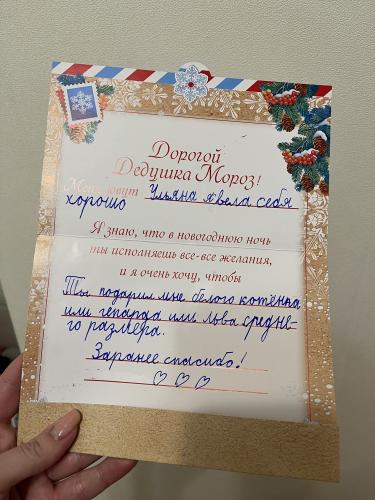 Дорогой
Дедушка Мороз!
Меня зовут Ульяна я вела себя
хорошо
Я знаю, что в новогоднюю ночь
ты исполняешь все-все желания,
и я очень хочу, чтобы
Ты подарил мне белого котёнка
или гепарда или льва средне-
го размера.
Заранее спасибо!